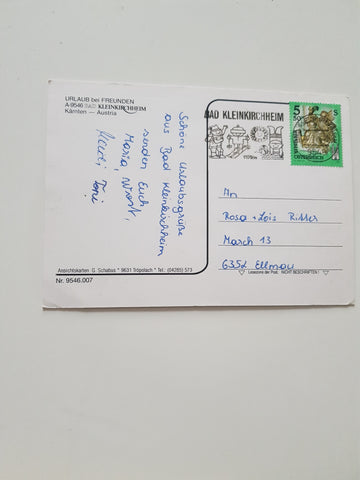 URLAUB bei FREUNDEN
A-9546 BAD KLEINKIRCHHEIM
Kärnten — Austria
Schöne Urlaubsgrüße
aus Bad Kleinkirchheim
senden Euch
Maria,
Toni
Ansichtskarten G. Schabus * 9631 Tröpolach * Tel.: (04285) 573
Nr. 9546.007
BAD KLEINKIRCHHEIM
5 50
S
ÖSTERREICH
An
Rosa + Lois Ritter
March 13
6352 Ellmau
Lesezone der Post. NICHT BESCHRIFTEN!